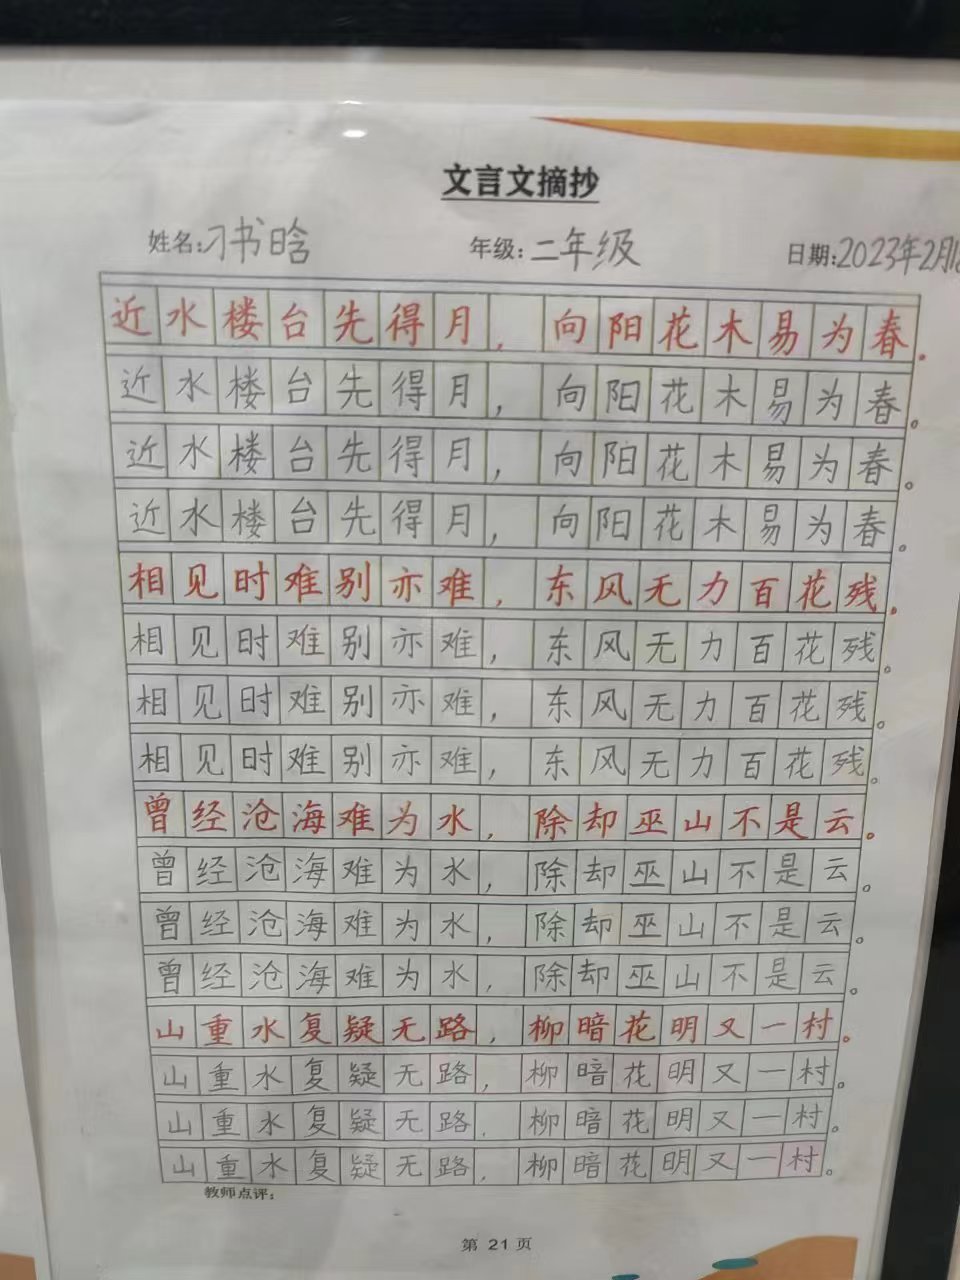 文言文摘抄
姓名:刁书晗 年级:二年级 日期:2023年2月18
近水楼台先得月，向阳花木易为春。
近水楼台先得月，向阳花木易为春。
近水楼台先得月，向阳花木易为春。
近水楼台先得月，向阳花木易为春。
相见时难别亦难，东风无力百花残。
相见时难别亦难，东风无力百花残。
相见时难别亦难，东风无力百花残。
相见时难别亦难，东风无力百花残。
曾经沧海难为水，除却巫山不是云。
曾经沧海难为水，除却巫山不是云。
曾经沧海难为水，除却巫山不是云。
曾经沧海难为水，除却巫山不是云。
山重水复疑无路，柳暗花明又一村。
山重水复疑无路，柳暗花明又一村。
山重水复疑无路，柳暗花明又一村。
山重水复疑无路，柳暗花明又一村。
教师点评：
第 21 页